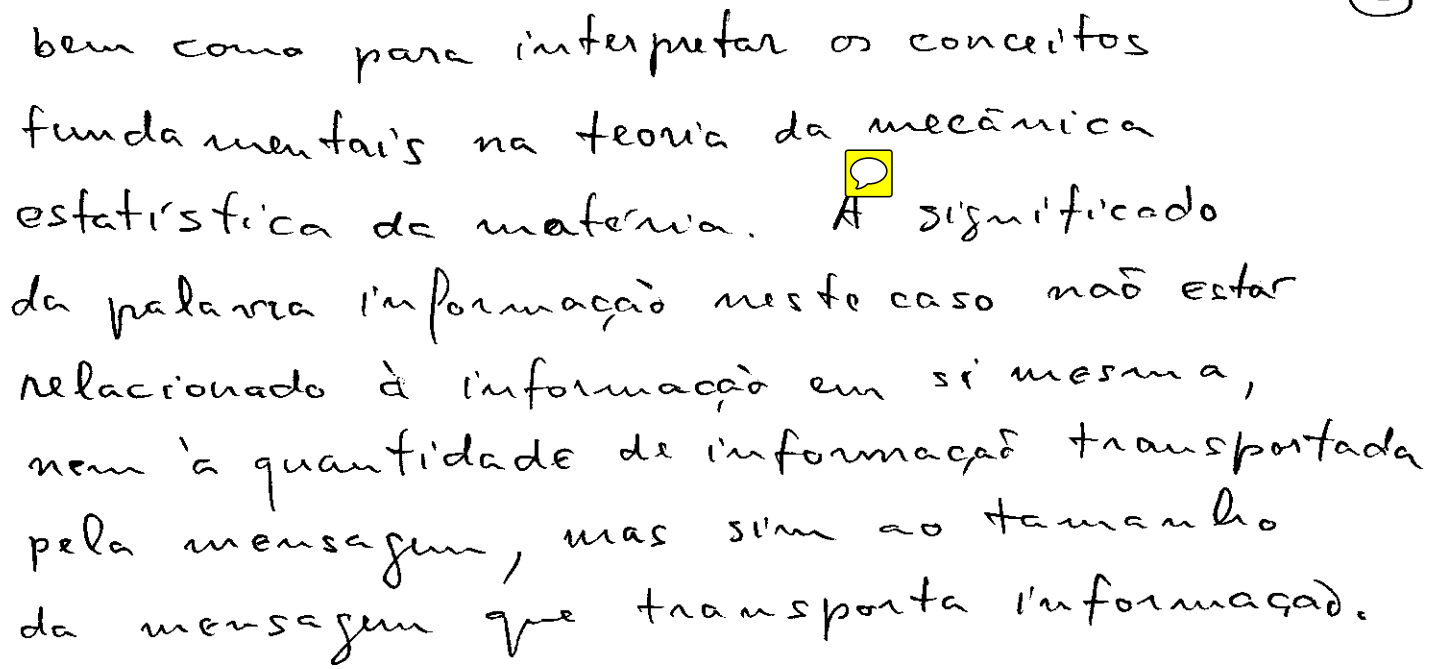 bem como para interpretar os conceitos
fundamentais na teoria da mecânica
estatística da matéria. A significado
da palavra informação neste caso não estar
relacionado à informação em si mesma,
nem à quantidade de informação transportada
pela mensagem, mas sim ao tamanho
da mensagem que transporta informação.